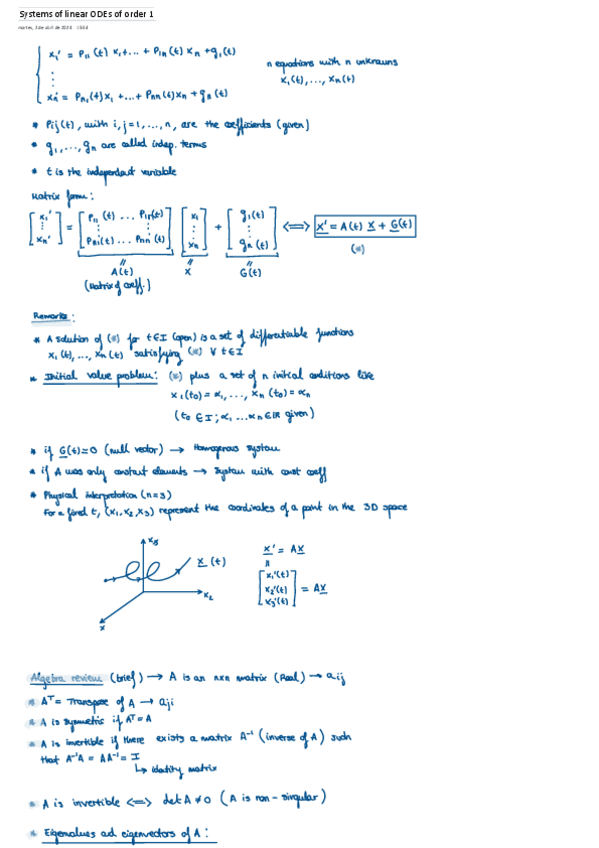 Systems of linear ODEs of order 1
x₁' = P₁₁(t) x₁ + ... + P₁ₙ(t) xₙ + g₁(t)
n equations with n unknowns
⋮
x₁(t), ..., xₙ(t)
xₙ' = Pₙ₁(t) x₁ + ... + Pₙₙ(t) xₙ + gₙ(t)
* Pij(t), with i,j=1,...,n, are the coefficients (given)
* g₁,...,gₙ are called indep. terms
* t is the independent variable
Matrix form:
[x₁' ⋮ xₙ'] = [P₁₁(t) ... P₁ₙ(t) ⋮ Pₙ₁(t) ... Pₙₙ(t)] [x₁ ⋮ xₙ] + [g₁(t) ⋮ gₙ(t)] <=> x' = A(t) x + G(t)
A(t) X G(t) (*)
(Matrix of coeff.)
Remarks:
* A solution of (*) for t∈I (open) is a set of differentiable functions
x₁(t), ..., xₙ(t) satisfying (*) ∀ t∈I
* Initial value problem: (*) plus a set of n initial conditions like
x₁(t₀) = α₁, ..., xₙ(t₀) = αₙ
(t₀ ∈ I; α₁ ... αₙ ∈ ℝ given)
* if G(t)=0 (null vector) → Homogenous system
* if A was only constant elements → System with const coeff
* Physical interpretation (n=3)
For a fixed t, (x₁,x₂,x₃) represent the coordinates of a point in the 3D space
x₃
x(t)
x' = Ax
[x₁'(t) x₂'(t) x₃'(t)] = Ax
x₂
x
Algebra review (brief) → A is an nxn matrix (Real) → aij
* Aᵀ = Transpose of A → aji
* A is symmetric if Aᵀ=A
* A is invertible if there exists a matrix A⁻¹ (inverse of A) such
that A⁻¹A = AA⁻¹ = I
↳ identity matrix
* A is invertible <=> det A ≠ 0 (A is non-singular)
* Eigenvalues ad eigenvectors of A: